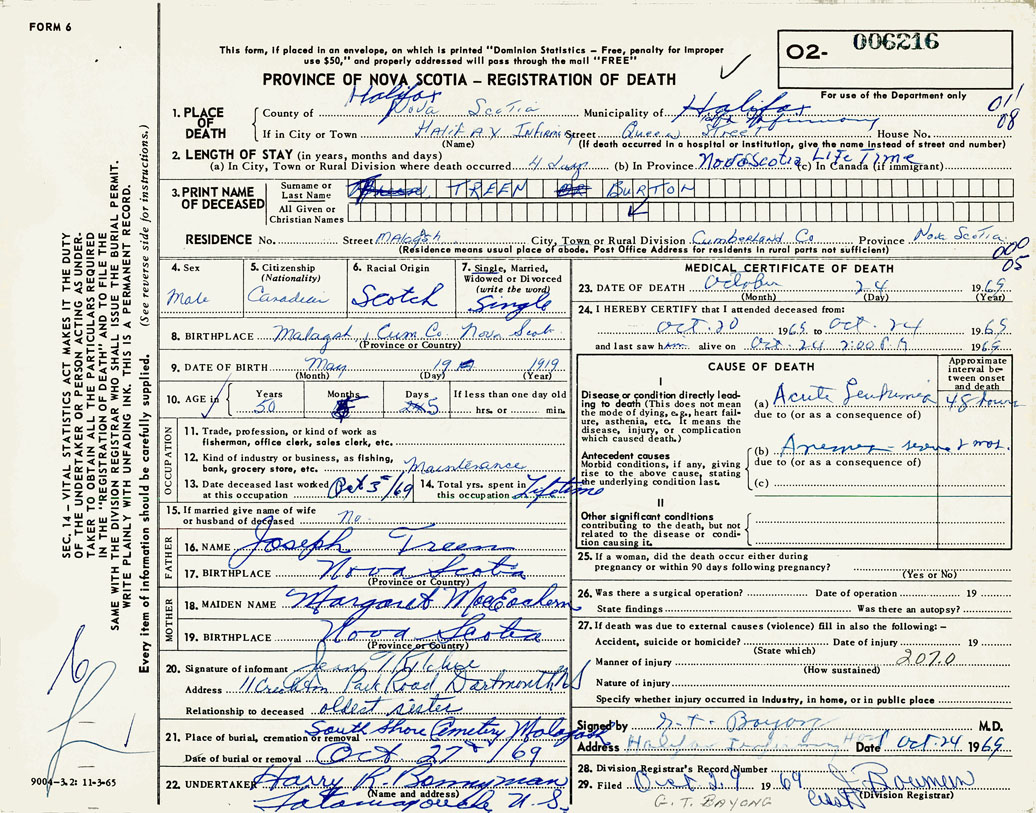 FORM 6
This form, if placed in an envelope, on which is printed "Dominion Statistics — Free, penalty for improper
use $50," and properly addressed will pass through the mail "FREE"
PROVINCE OF NOVA SCOTIA — REGISTRATION OF DEATH
O2- 006216
For use of the Department only
011
08
1. PLACE OF DEATH
County of Halifax Nova Scotia Municipality of Halifax
If in City or Town Halifax Infirmary Street Queen Street House No.
(Name) (If death occurred in a hospital or institution, give the name instead of street and number)
2. LENGTH OF STAY (in years, months and days)
(a) In City, Town or Rural Division where death occurred 4 days (b) In Province Nova Scotia Life Time (c) In Canada (if immigrant)
3. PRINT NAME OF DECEASED
Surname or Last Name TREEN BURTON
All Given or Christian Names
RESIDENCE No. Street Malagash City, Town or Rural Division Cumberland Co Province Nova Scotia
(Residence means usual place of abode. Post Office Address for residents in rural parts not sufficient)
000
05
4. Sex Male
5. Citizenship (Nationality) Canadian
6. Racial Origin Scotch
7. Single, Married, Widowed or Divorced (write the word) Single
8. BIRTHPLACE Malagash, Cum. Co. Nova Scot.
(Province or Country)
9. DATE OF BIRTH May 19 1919
(Month) (Day) (Year)
10. AGE in Years 50 Months 5 Days 5 If less than one day old
hrs. or min.
OCCUPATION
11. Trade, profession, or kind of work as
fisherman, office clerk, sales clerk, etc.
12. Kind of industry or business, as fishing,
bank, grocery store, etc. Maintenance
13. Date deceased last worked at this occupation Oct 3/69
14. Total yrs. spent in this occupation Lifetime
15. If married give name of wife
or husband of deceased No.
FATHER
16. NAME Joseph Treen
17. BIRTHPLACE Nova Scota
(Province or Country)
MOTHER
18. MAIDEN NAME Margaret MacEachern
19. BIRTHPLACE Nova Scotia
(Province or Country)
20. Signature of informant
Address 11 Creighton Park Road Dartmouth NS
Relationship to deceased oldest sister
21. Place of burial, cremation or removal South Shore Cemetery Malagash
Date of burial or removal Oct. 27 / 69
22. UNDERTAKER Harry R. Bonnyman
(Name and address)
Tatamagouche N.S.
MEDICAL CERTIFICATE OF DEATH
23. DATE OF DEATH October 24 1969
(Month) (Day) (Year)
24. I HEREBY CERTIFY that I attended deceased from:
Oct. 20 1969 to Oct. 24 1969
and last saw him alive on Oct. 24 2:00 PM 1969
CAUSE OF DEATH
Approximate interval between onset and death
I
Disease or condition directly leading to death (This does not mean
the mode of dying, e.g., heart failure, asthenia, etc. It means the
disease, injury, or complication
which caused death.)
(a) Acute Leukemia 48 hours
due to (or as a consequence of)
Antecedent causes
Morbid conditions, if any, giving
rise to the above cause, stating
the underlying condition last.
(b) 2 mos.
due to (or as a consequence of)
(c)
II
Other significant conditions
contributing to the death, but not
related to the disease or condition causing it.
25. If a woman, did the death occur either during
pregnancy or within 90 days following pregnancy?
(Yes or No)
26. Was there a surgical operation? Date of operation 19
State findings Was there an autopsy?
27. If death was due to external causes (violence) fill in also the following: —
Accident, suicide or homicide? Date of injury 19
(State which)
Manner of injury 207.0
(How sustained)
Nature of injury
Specify whether injury occurred in Industry, in home, or in public place
Signed by G.T. Bayong M.D.
Address Halifax Infirmary Hosp Date Oct. 24 1969
28. Division Registrar's Record Number
29. Filed Oct 29 1969
(Division Registrar)
G. T. BAYONG
SEC. 14 — VITAL STATISTICS ACT MAKES IT THE DUTY
OF THE UNDERTAKER OR PERSON ACTING AS UNDER-
TAKER TO OBTAIN ALL THE PARTICULARS REQUIRED
IN THE "REGISTRATION OF DEATH" AND TO FILE THE
SAME WITH THE DIVISION REGISTRAR WHO SHALL ISSUE THE BURIAL PERMIT.
WRITE PLAINLY WITH UNFADING INK. THIS IS A PERMANENT RECORD.
Every item of information should be carefully supplied. (See reverse side for instructions.)
9004-3.2: 11-3-65